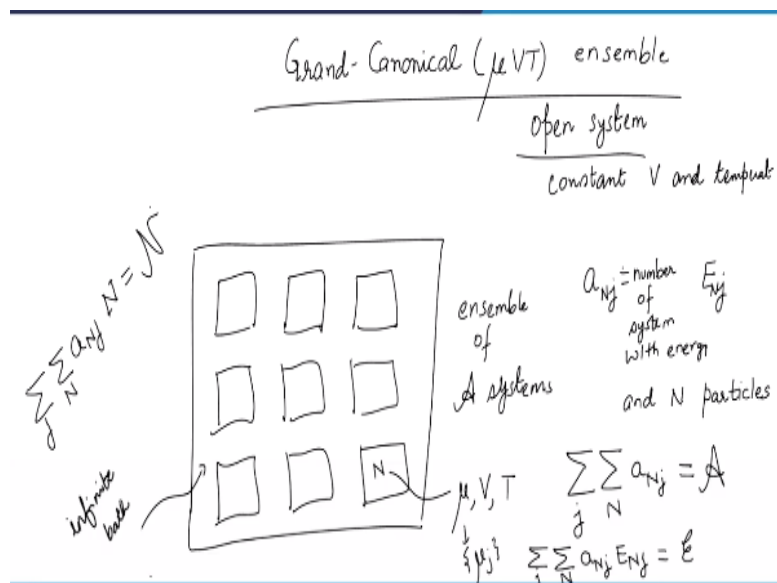 Grand-Canonical (μVT) ensemble
open system
constant V and temperat
∑_j ∑_N a_Nj N = 𝒩
ensemble
of
𝒜 systems
a_Nj ÷ number
of
system
with energy
E_Nj
and N particles
infinite
bath
N
μ, V, T
↓
{μ_j}
∑_j ∑_N a_Nj = 𝒜
∑_j ∑_N a_Nj E_Nj = ℰ